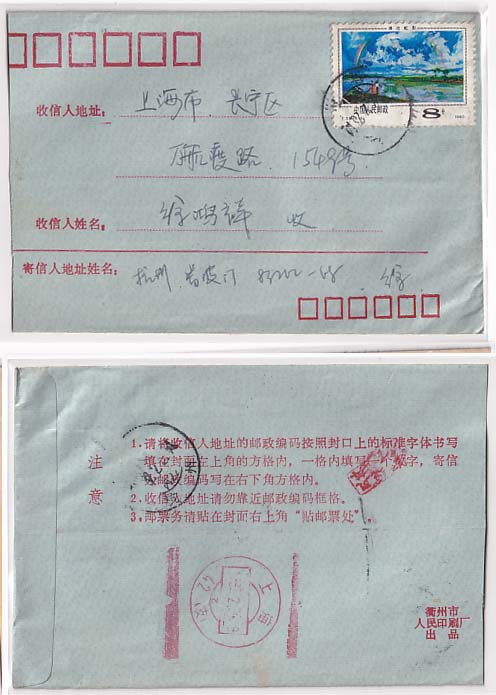 收信人地址: 上海市 长宁区
万航渡路 1549号
收信人姓名: 徐鸿祥 收
寄信人地址姓名: 杭州
8分
中国人民邮政
注意
1.请将收信人地址的邮政编码按照封口上的标准字体书写
填在封面左上角的方格内,一格内填写一个数字,寄信
人邮政编码写在右下角方格内。
2.收信人地址请勿靠近邮政编码框格。
3.邮票务请贴在封面右上角“贴邮票处”。
上海
衢州市
人民印刷厂
出品